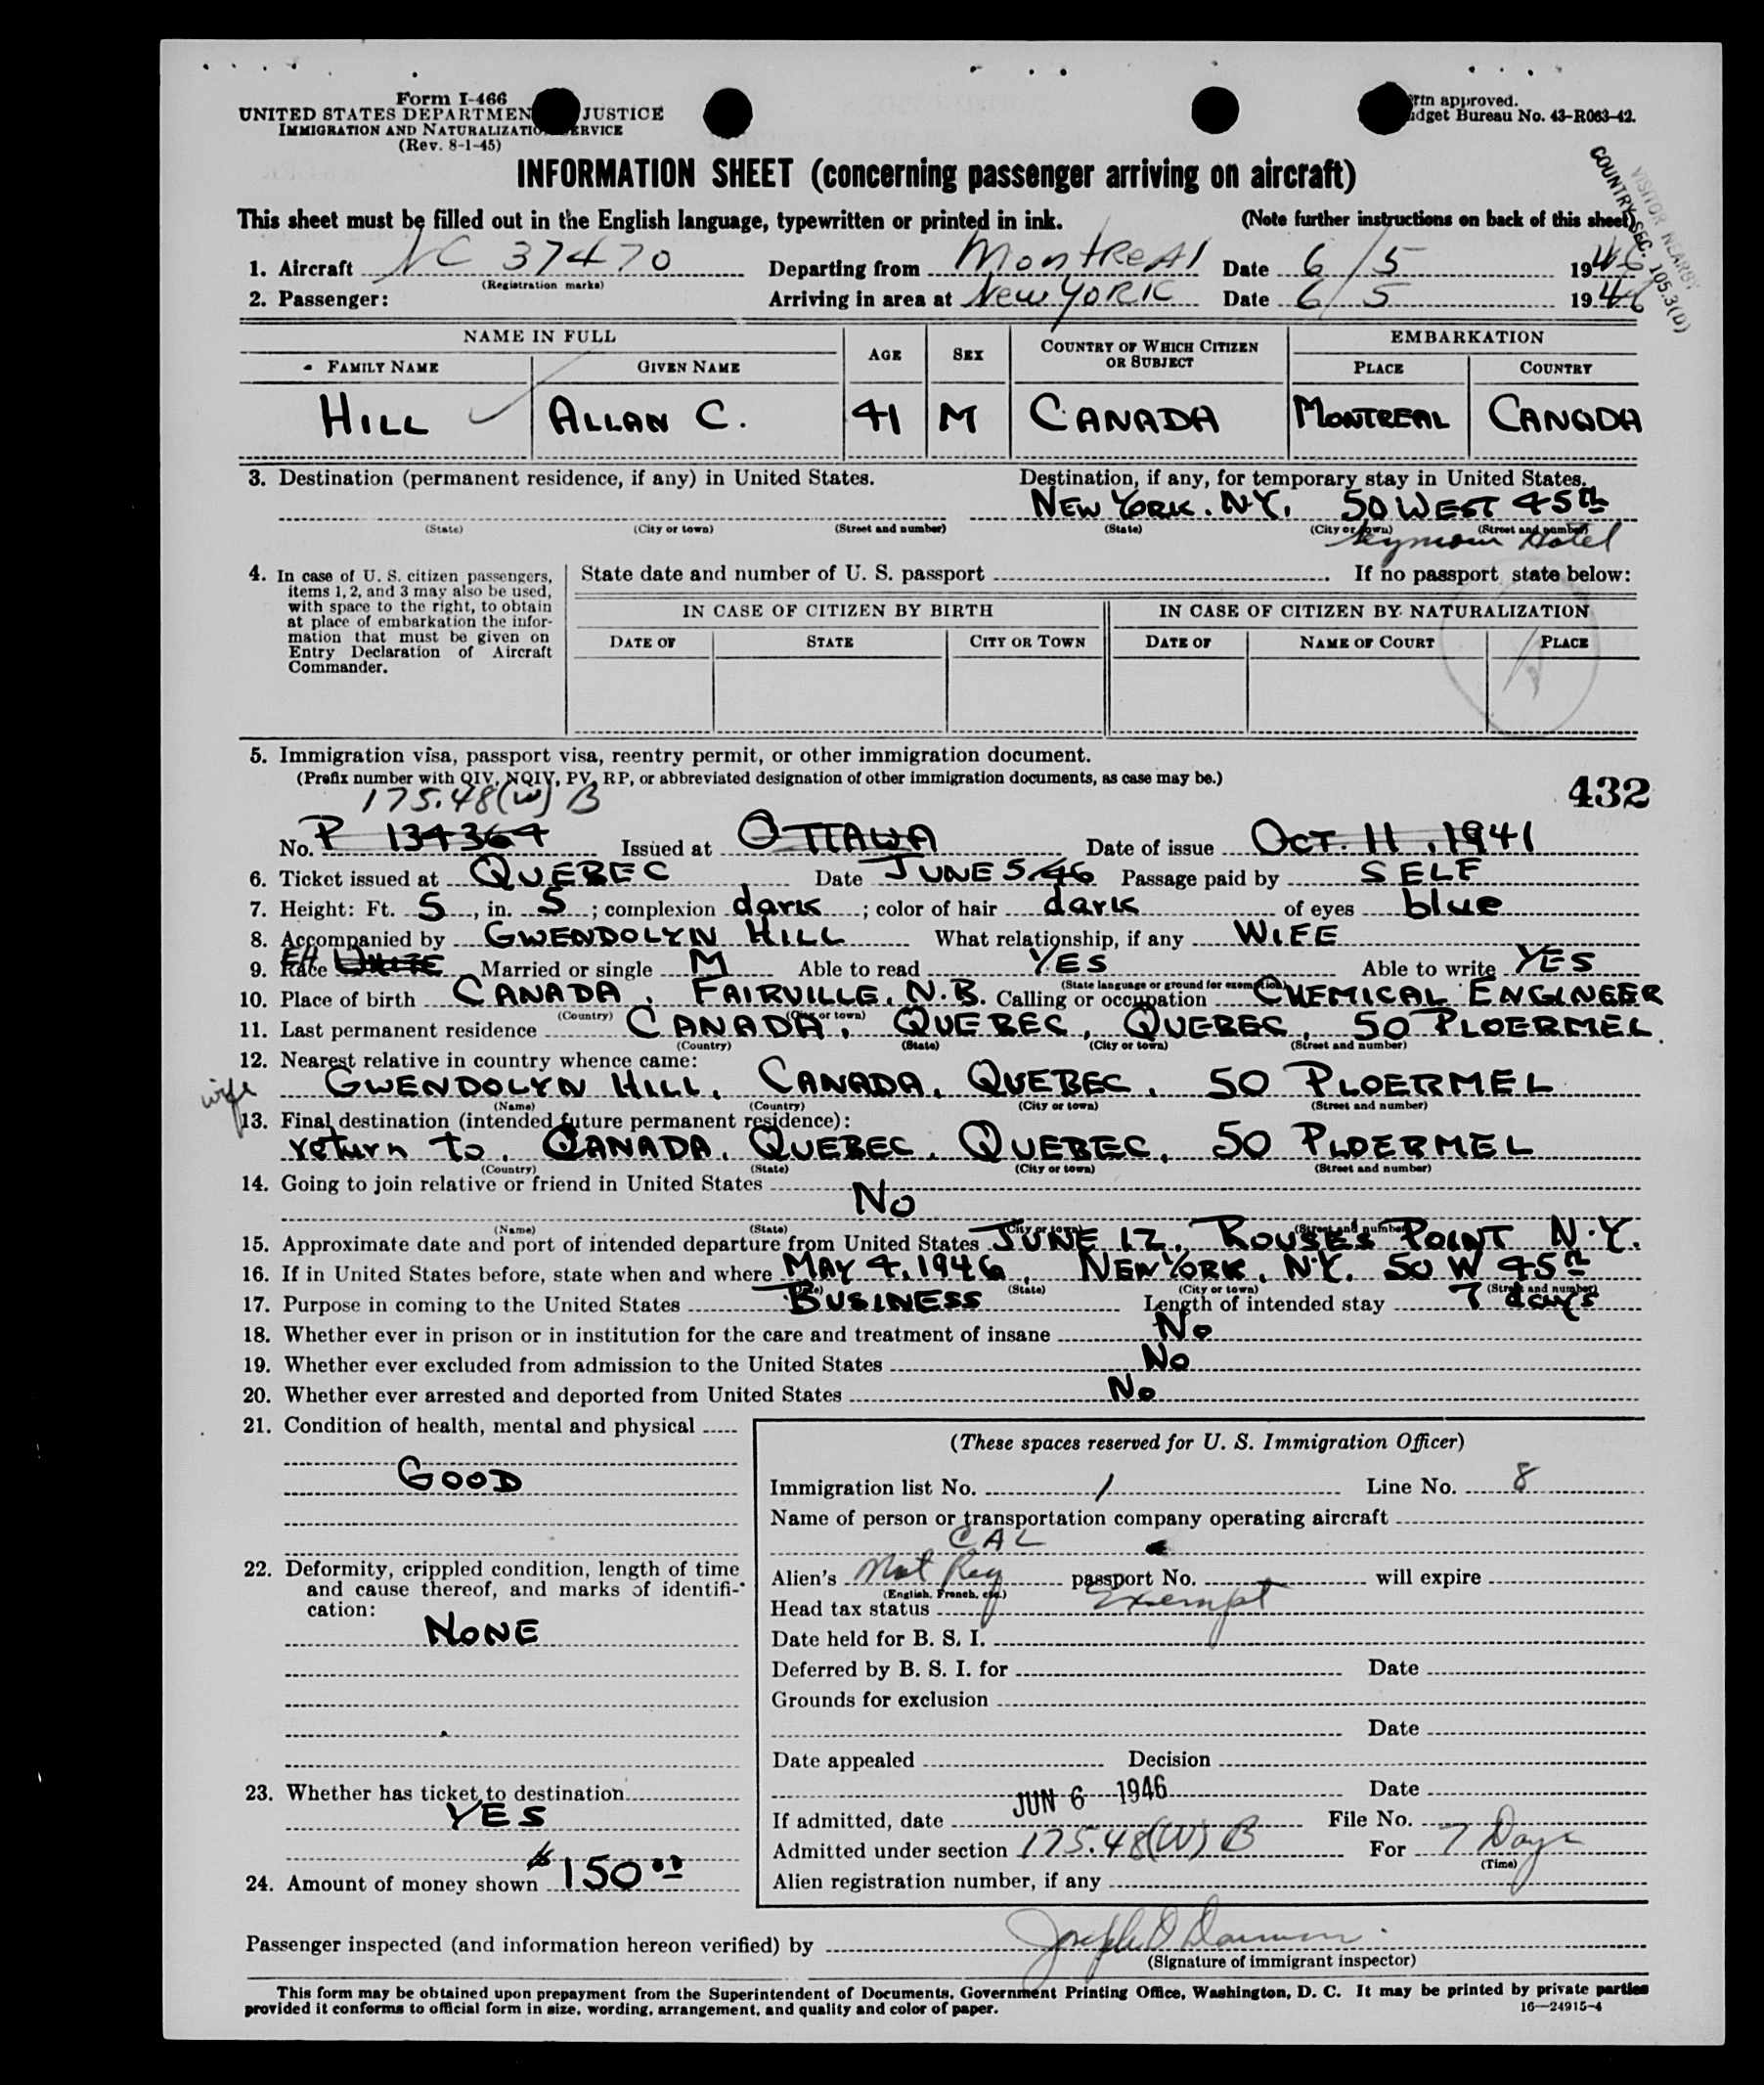 Form I-466
UNITED STATES DEPARTMEN JUSTICE
IMMIGRATION AND NATURALIZATIO ERVICE
(Rev. 8-1-45)
rm approved.
dget Bureau No. 43-R063-42.
INFORMATION SHEET (concerning passenger arriving on aircraft)
This sheet must be filled out in the English language, typewritten or printed in ink. (Note further instructions on back of this sheet)
VISITOR NEARBY
COUNTRY SEC. 105.3(D)
1. Aircraft NC 37470 Departing from Montreal Date 6/5 1946
(Registration marks)
2. Passenger: Arriving in area at New York Date 6/5 1946
NAME IN FULL AGE SEX COUNTRY OF WHICH CITIZEN OR SUBJECT EMBARKATION
FAMILY NAME GIVEN NAME PLACE COUNTRY
HILL ALLAN C. 41 M CANADA MONTREAL CANADA
3. Destination (permanent residence, if any) in United States. Destination, if any, for temporary stay in United States.
NEW YORK. N.Y. 50 WEST 45th
(State) (City or town) (Street and number) (State) (City or town) (Street and number)
Seymour Hotel
4. In case of U. S. citizen passengers, items 1, 2, and 3 may also be used, with space to the right, to obtain at place of embarkation the information that must be given on Entry Declaration of Aircraft Commander.
State date and number of U. S. passport If no passport state below:
IN CASE OF CITIZEN BY BIRTH IN CASE OF CITIZEN BY NATURALIZATION
DATE OF STATE CITY OR TOWN DATE OF NAME OF COURT PLACE
5. Immigration visa, passport visa, reentry permit, or other immigration document.
(Prefix number with QIV, NQIV, PV, RP, or abbreviated designation of other immigration documents, as case may be.)
432
175.48(W) B
No. P 134364 Issued at OTTAWA Date of issue OCT. 11, 1941
6. Ticket issued at QUEBEC Date JUNE 5/46 Passage paid by SELF
7. Height: Ft. 5, in. 5; complexion dark; color of hair dark of eyes blue
8. Accompanied by GWENDOLYN HILL What relationship, if any WIFE
9. Race EH WHITE Married or single M Able to read YES Able to write YES
(State language or ground for exemption)
10. Place of birth CANADA, FAIRVILLE, N.B. Calling or occupation CHEMICAL ENGINEER
(Country) (City or town)
11. Last permanent residence CANADA, QUEBEC, QUEBEC, 50 PLOERMEL
(Country) (State) (City or town) (Street and number)
12. Nearest relative in country whence came:
wife GWENDOLYN HILL, CANADA, QUEBEC, 50 PLOERMEL
(Name) (Country) (City or town) (Street and number)
13. Final destination (intended future permanent residence):
return to, CANADA, QUEBEC, QUEBEC, 50 PLOERMEL
(Country) (State) (City or town) (Street and number)
14. Going to join relative or friend in United States
NO
(Name) (State) (City or town) (Street and number)
15. Approximate date and port of intended departure from United States JUNE 12, ROUSES POINT N.Y.
16. If in United States before, state when and where MAY 4, 1946, NEW YORK, N.Y. 50 W 45th
(State) (City or town) (Street and number)
17. Purpose in coming to the United States BUSINESS Length of intended stay 7 days
18. Whether ever in prison or in institution for the care and treatment of insane No
19. Whether ever excluded from admission to the United States No
20. Whether ever arrested and deported from United States No
21. Condition of health, mental and physical
GOOD
22. Deformity, crippled condition, length of time and cause thereof, and marks of identification:
NONE
23. Whether has ticket to destination
YES
24. Amount of money shown $150.00
(These spaces reserved for U. S. Immigration Officer)
Immigration list No. 1 Line No. 8
Name of person or transportation company operating aircraft
CAL
Alien's Nat Reg passport No. will expire
(English, French, etc.)
Head tax status Exempt
Date held for B. S. I.
Deferred by B. S. I. for Date
Grounds for exclusion
Date
Date appealed Decision
Date
JUN 6 1946
If admitted, date File No.
Admitted under section 175.48(W) B For 7 Days
(Time)
Alien registration number, if any
Passenger inspected (and information hereon verified) by
(Signature of immigrant inspector)
This form may be obtained upon prepayment from the Superintendent of Documents, Government Printing Office, Washington, D. C. It may be printed by private parties
provided it conforms to official form in size, wording, arrangement, and quality and color of paper.
16—24915-4